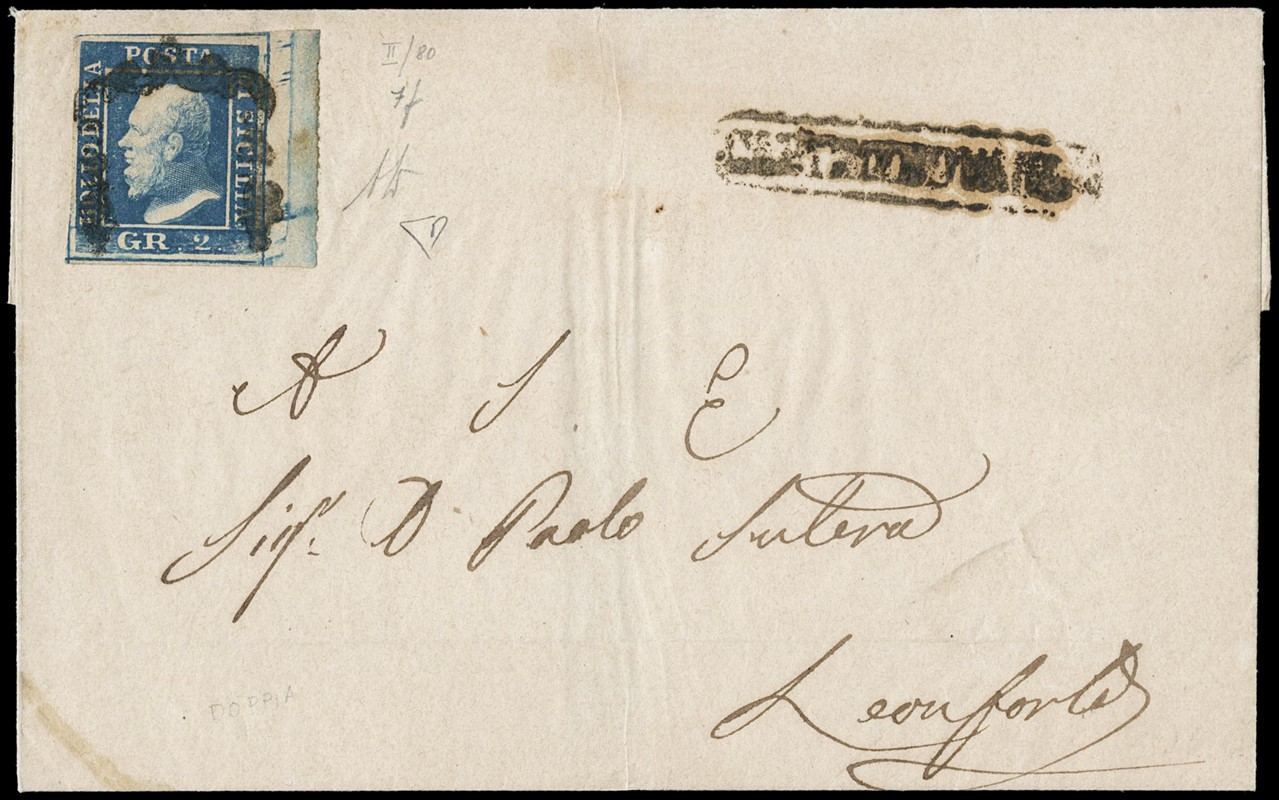 POSTA
BOLLO DELLA
DI SICILIA
GR. 2.
II/80
A S E
Sigr. D Paolo Sutera
Leonforte
DOPPIA